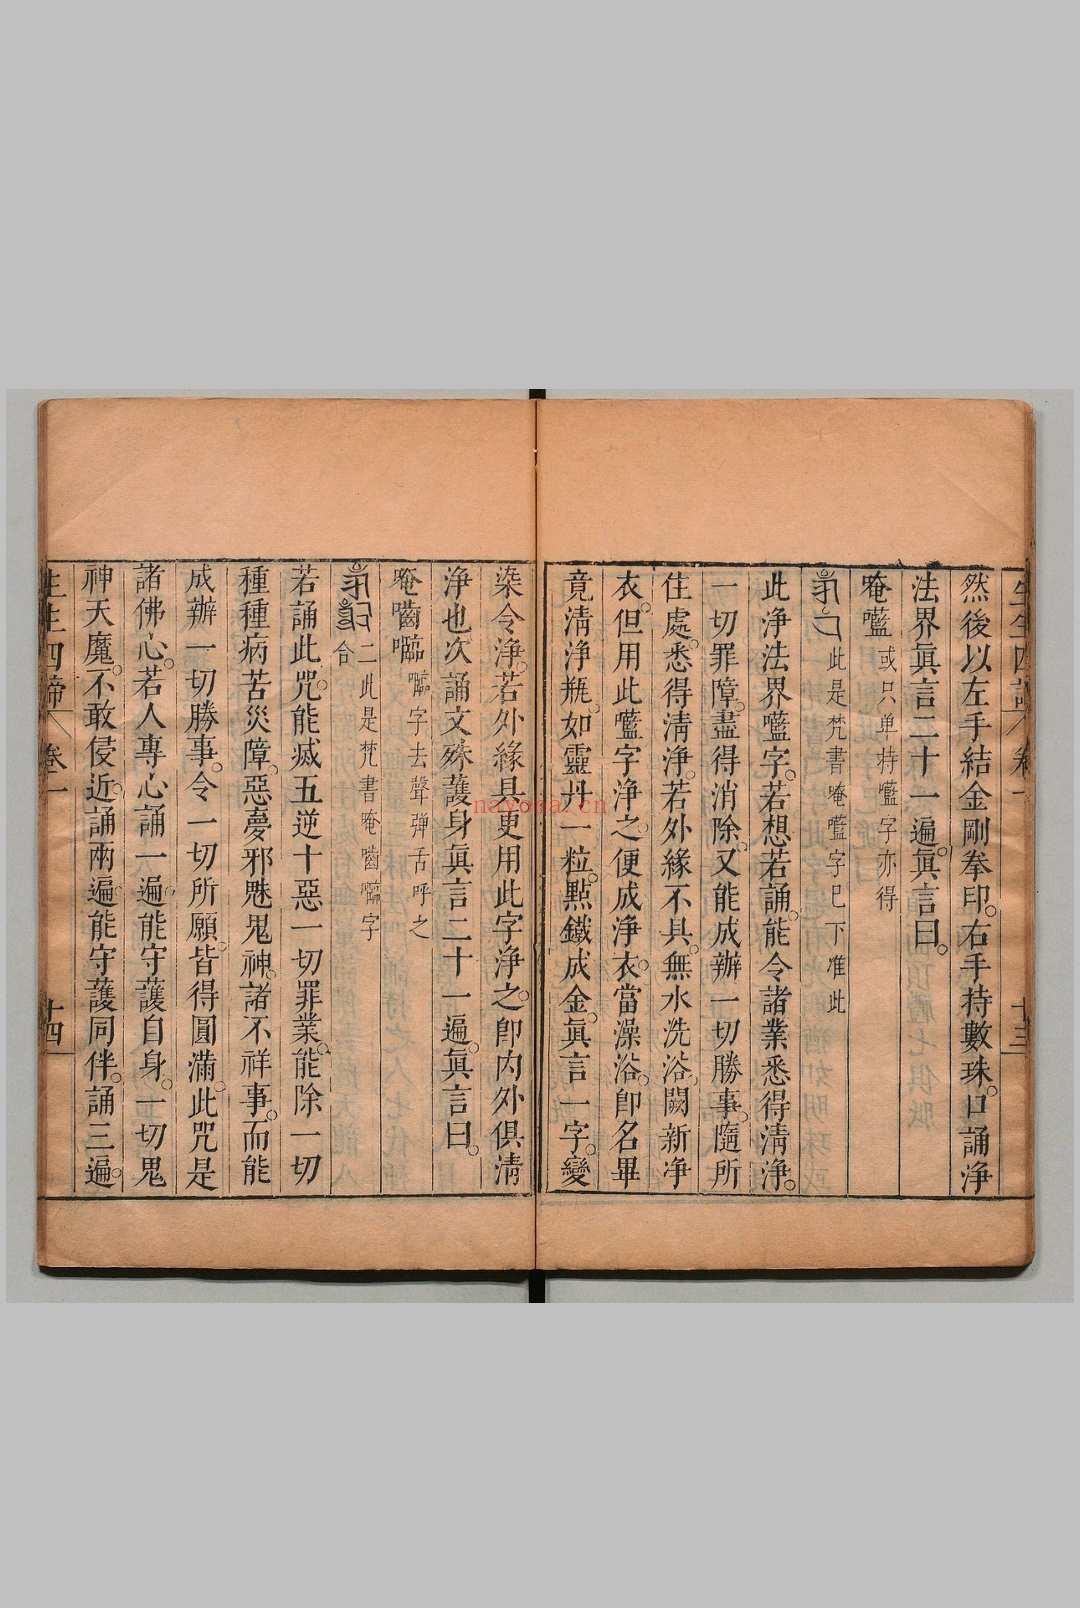 生生四諦 卷一 十三
然後以左手結金剛拳印。右手持數珠。口誦淨
法界眞言二十一遍。眞言曰。
唵㘕 或只单持㘕字亦得
此是梵書唵㘕字巳下准此
此淨法界㘕字。若想若誦。能令諸業悉得清淨。
一切罪障。盡得消除。又能成辦一切勝事。隨所
住處。悉得清淨。若外緣不具。無水洗浴。闕新淨
衣。但用此㘕字淨之。便成淨衣。當澡浴。卽名畢
竟清淨瓶。如靈丹一粒。點鐵成金。眞言一字。變
染令淨。若外緣具。更用此字淨之。卽内外俱清
淨也次誦文殊護身眞言二十一遍。眞言曰。
唵嚙㘕 㘕字去聲弹舌呼之
二合 此是梵書唵嚙㘕字
若誦此咒。能滅五逆十惡一切罪業。能除一切
種種病苦災障。惡夢邪魅鬼神。諸不祥事。而能
成辦一切勝事。令一切所願。皆得圓滿。此咒是
諸佛心。若人專心誦一遍能守護自身。一切鬼
神天魔。不敢侵近。誦兩遍。能守護同伴。誦三遍。
生生四諦 卷一 十四
nayona.cn